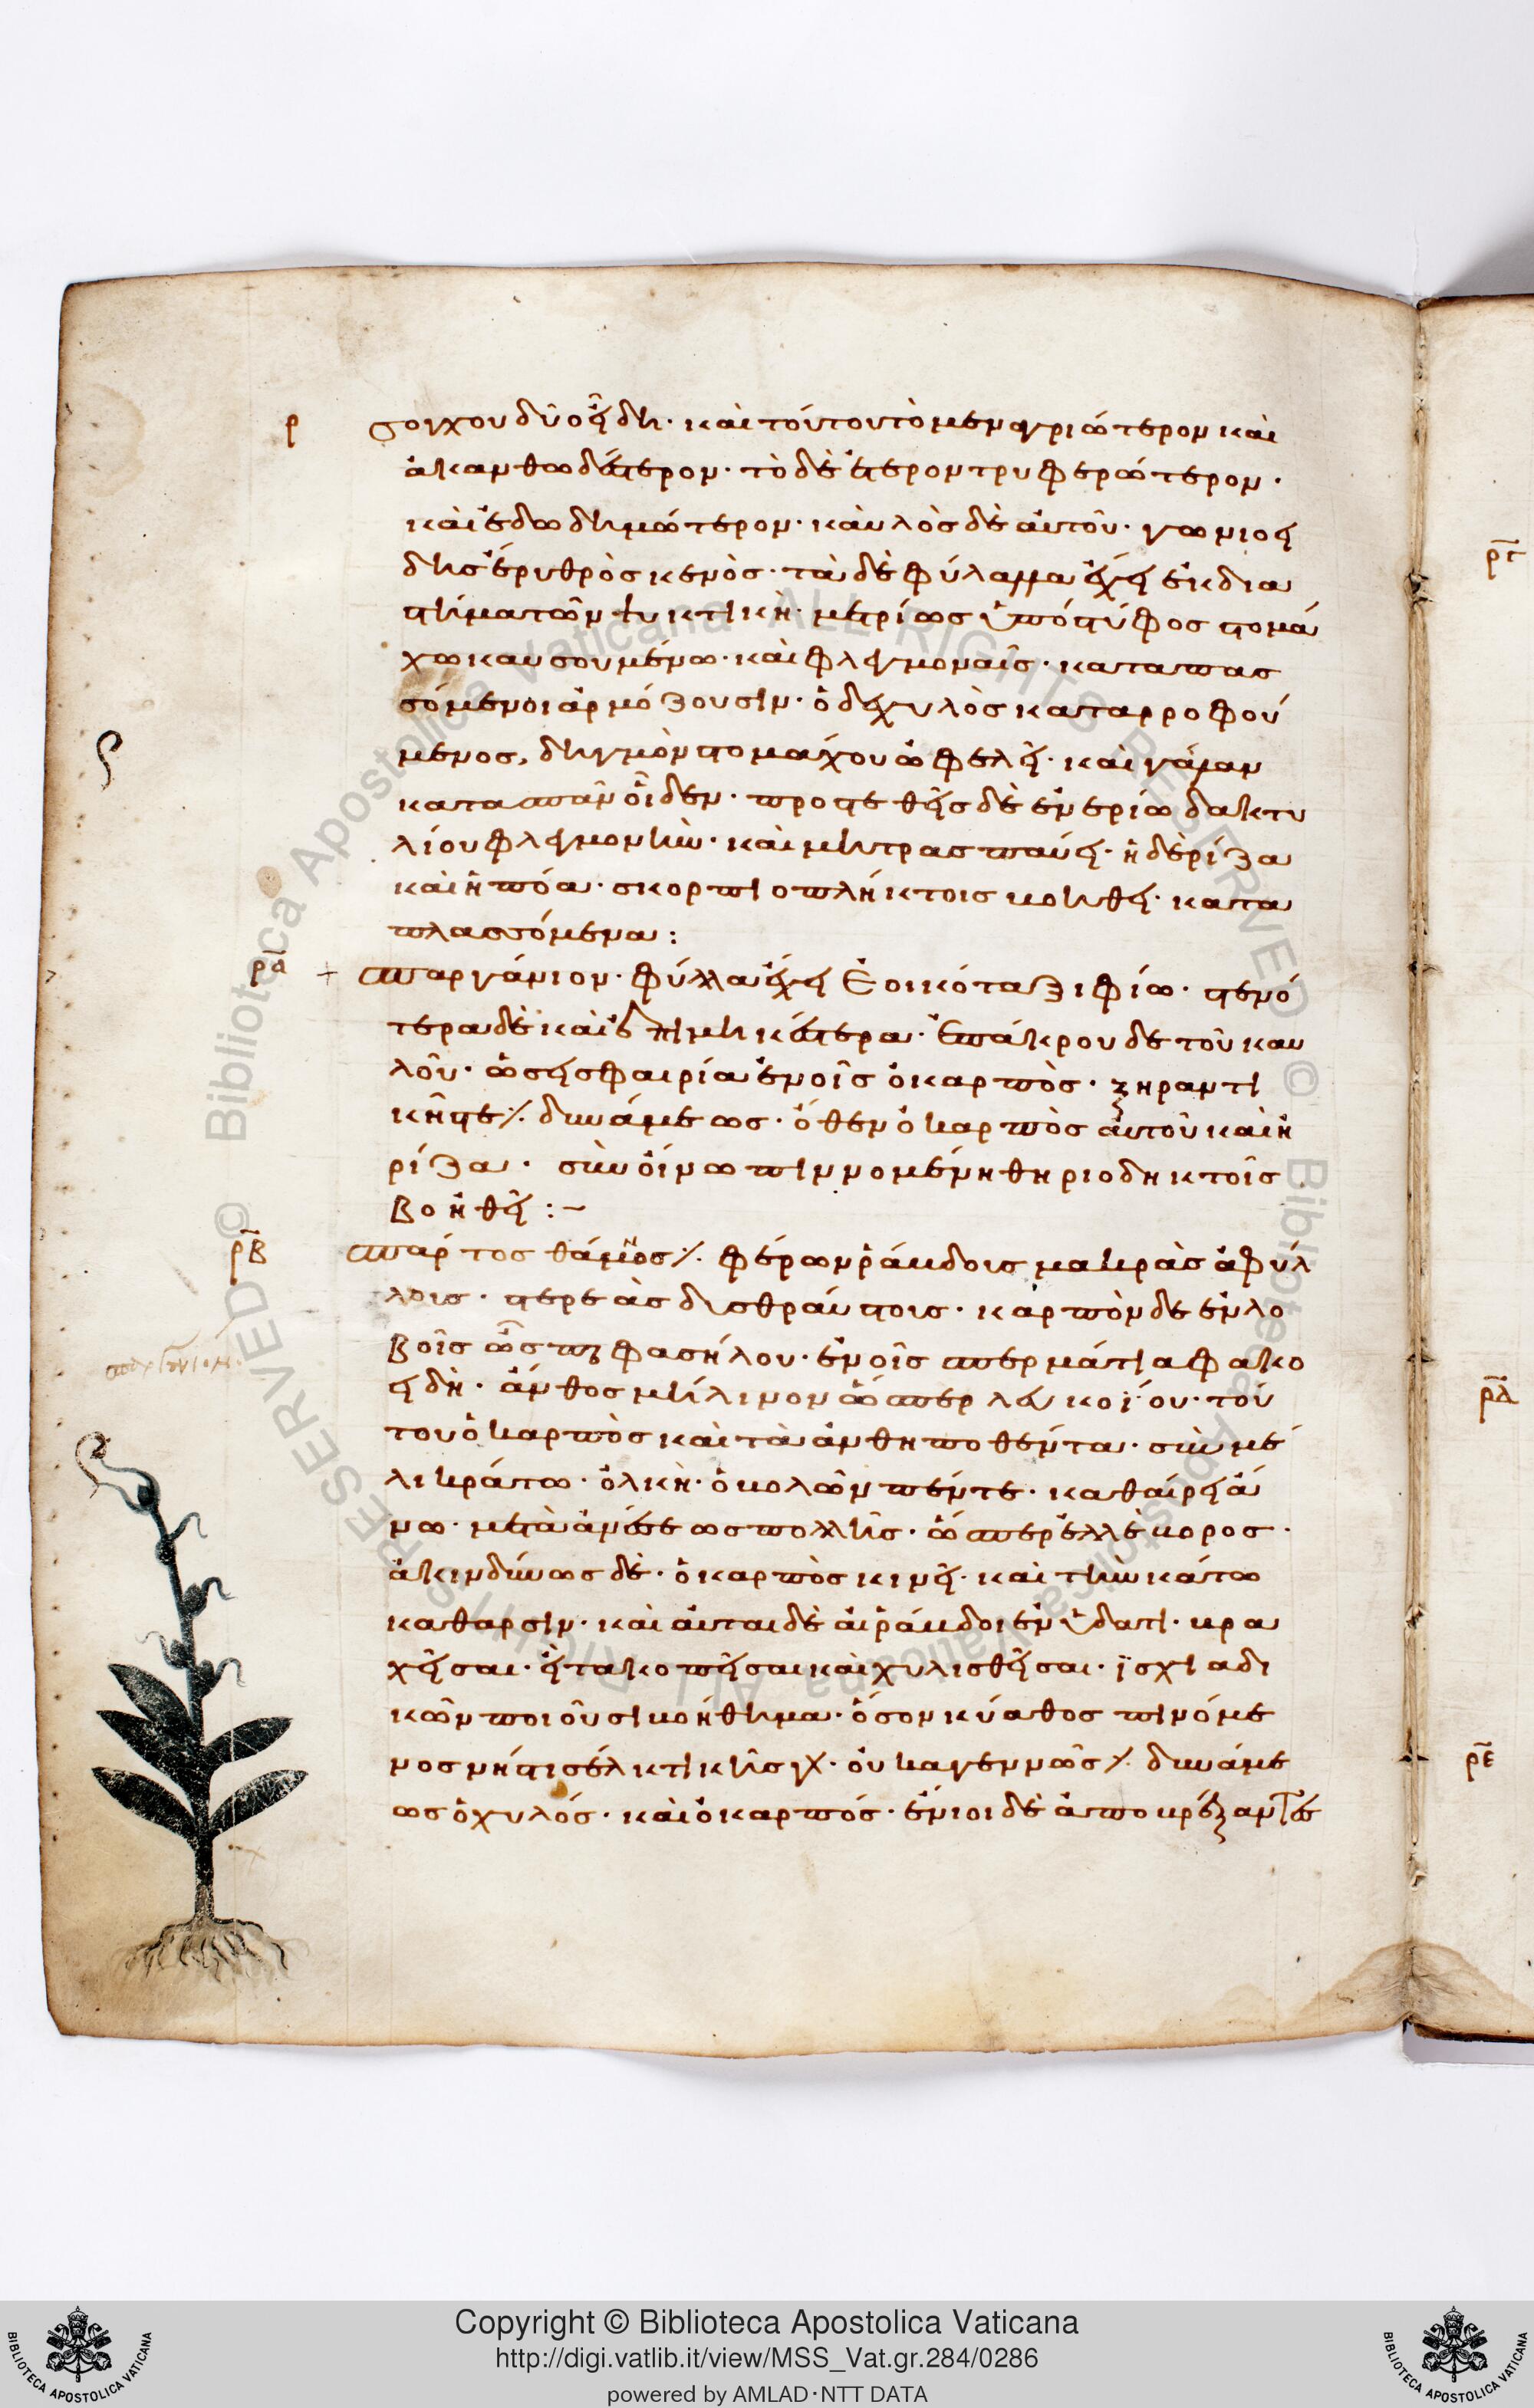 ρ
σογχου δύο εἴδη· καὶ τούτου τὸ μεν αγριώτερον και
ἀκανθωδέστερον· τὸ δὲ ἕτερον τρυφερώτερον·
καὶ ἐδωδημώτερον· καυλὸς δὲ αὐτοῦ· γωνιοει
δησ ἐρυθρὸς κενὸς· τὰ δὲ φύλλα ἔχει ἐκ δια
στήματων ψυκτικὴ· μετρίως ὑπόστύφος στομά
χω καυσουμένω· καὶ φλεγμοναῖς· καταπας
σόμενοι ἁρμόζουσιν· ὁ δὲ χυλὸς καταρροφού
μενος, δηγμὸν στομάχου ὠφελεῖ· καὶ γάλαν
κατασπᾶν οἶδεν· προστεθεὶς δὲ ἐν ἐρίω δακτυ
λίου φλεγμονὴν· καὶ μήτρας παύει· ἡ δὲ ρίζα
καὶ ἡ πόα· σκορπιοπλήκτοις βοηθεῖ· κατα
πλασσόμενα:
ρα
σπαργάνιον· φύλλα ἔχει ἐοικότα ξιφίω· στενό
τερα δὲ καὶ ἐπιμηκέστερα· ἐπ ἄκρου δε τοῦ καυ
λοῦ· ὡσεὶ σφαιρία ἐν οἷς ὁ καρπὸς· ξηραντι
κῆς τε ⁒ δυνάμεως· ὅθεν ὁ καρπὸς αὐτοῦ καὶ ἡ
ρίζα· σὺν οἴνω πινομένη θηριοδηκτοῖς
βοηθεῖ:~
ρβ
σπαρτος θάμνος ⁒ φέρων ράβδους μακρὰς ἀφύλ
λους· στερεὰς δυσθραύστους· καρπὸν δε ἐν λο
βοῖς ὥσπερ φασήλου· ἐν οἷς σπερμάτια φακο
ειδὴ· ἄνθος μήλινον ὥσπερ λευκοΐου· τού
του ὁ καρπὸς καὶ τὰ άνθη ποθέντα· σὺν με
λικράτω· ὁλκὴ· ὀβολῶν πέντε· καθαίρει ἄ
νω· μετὰ ἀνέσεως πολλῆς· ὥσπερ ἑλλέβορος·
ἀκινδύνως δὲ· ὁ καρπὸς κινεῖ· καὶ τὴν κάτω
καθαρσιν· καὶ αὐται δὲ αἱ ράβδοι ἐν ὕδατι· βρα
χεῖσαι· εἶτα κοπεῖσαι καὶ χυλισθεῖσαι· ϊσχιαδι
κῶν ποιοῦσι βοήθημα· ὅσον κύαθος πινόμε
νος νήστισ
ως ὁ χυλός· καὶ ὁ καρπός· ἔνιοι δὲ ἀποβρέξαντες
ρδ
ρε
Copyright © Biblioteca Apostolica Vaticana
http://digi.vatlib.it/view/MSS_Vat.gr.284/0286
powered by AMLAD·NTT DATA
BIBLIOTECA APOSTOLICA VATICANA
BIBLIOTECA APOSTOLICA VATICANA